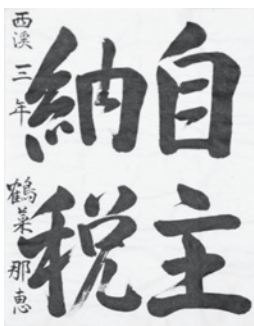 自主
納税
西溪三年 鶴菓那恵